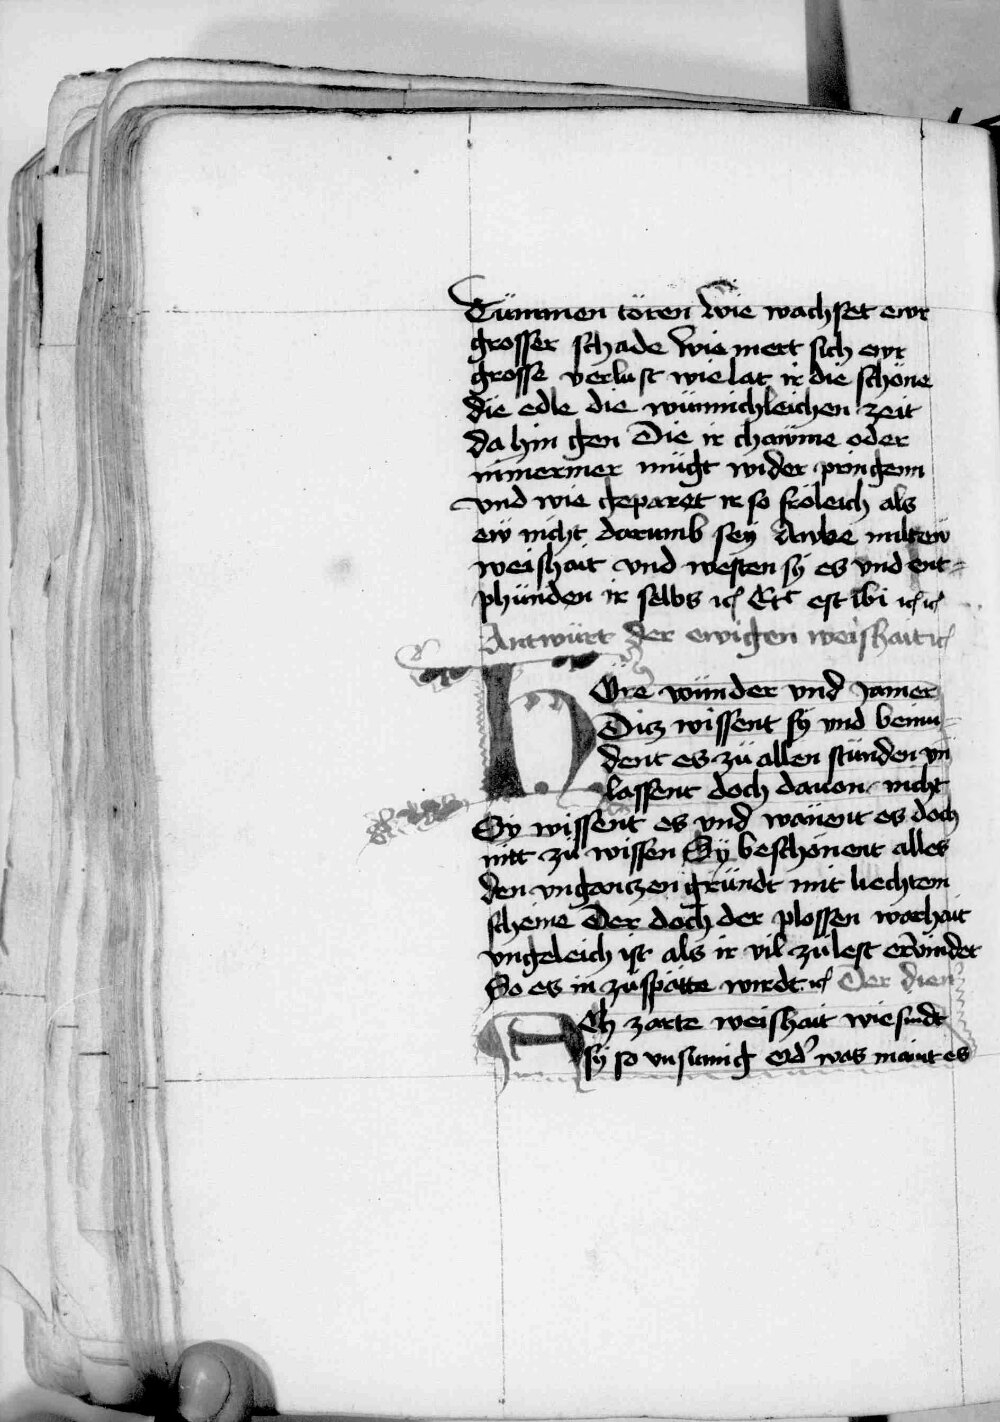 Tümmen tören Wie wachset ewr
grosser schade Wie mert sich ewr
grosse verlust wie lat ir die schöne
die edle die wünnichleichen zeit
da hin gen Die ir chawme oder
nimermer mügt wider pringenn
vnd wie geparet ir so fröleich als
ew nicht darumb sey Awbe miltew
weishait vnd westen sy es vnd ent=
phünden ir selbs ꝛc Etc est ibi ꝛc ꝛc
Antwürt der ewigen weishait ꝛc
Höre wünder vnd iamer
Ditz wissent sy vnd bevin=
dent es zü allen stünden vn̄
lassent doch dauon nicht
Sy wissent es vnd wänent es doch
nitt zü wissen Sy beschönent alles
den vnganczen gründt mit liechtem
scheine Der doch der plossen warhait
vngeleich ist als ir vil zülest erwindet
So es in zü spätte wirdt ꝛc Der dien
Ach zarte weishait wie sindt
sy so vnsinnig od' was maint es